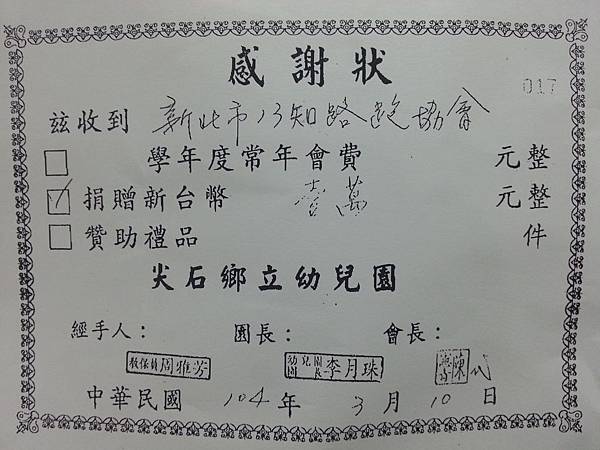 感謝狀
017
茲收到 新北市行知路跑協會
學年度常年會費 元整
捐贈新台幣 壹萬 元整
贊助禮品 件
尖石鄉立幼兒園
經手人： 園長： 會長：
教保員 周雅芳 幼兒園園長 李月珠 陳 代
中華民國 104 年 3 月 10 日